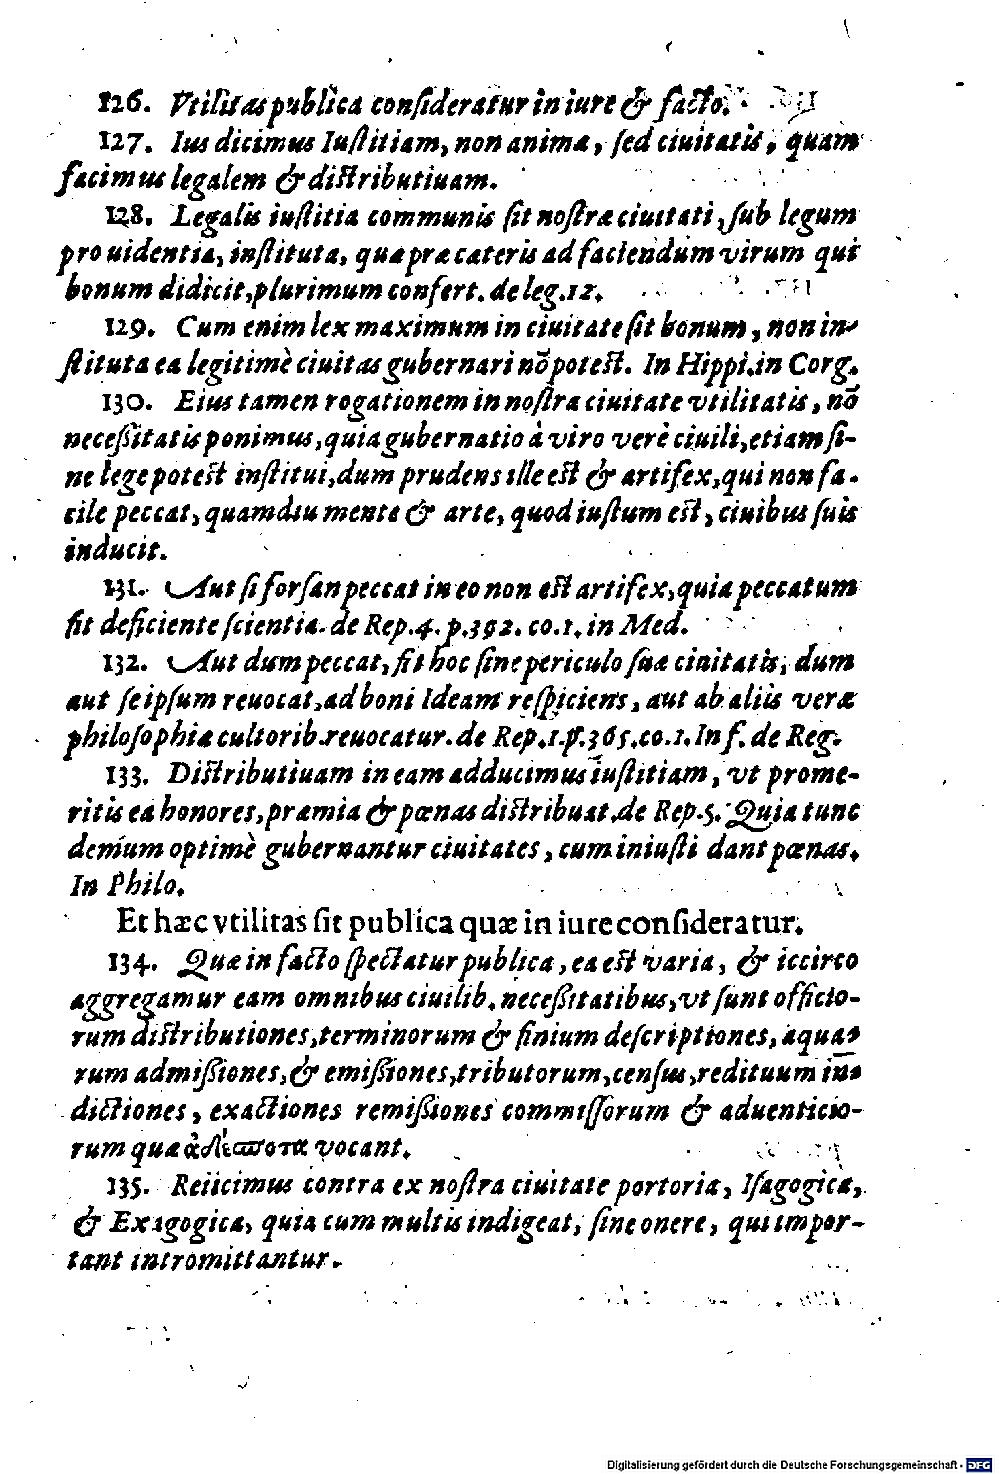 126. Vtilitas publica consideratur in iure & facto.
127. Ius dicimus Iustitiam, non animæ, sed ciuitatis, quam
facimus legalem & distributiuam.
128. Legalis iustitia communis sit nostræ ciuitati, sub legum
prouidentia, instituta, quæ præ cæteris ad faciendum virum qui
bonum didicit, plurimum confert. de leg. 12.
129. Cum enim lex maximum in ciuitate sit bonum, non in-
stituta ea legitimè ciuitas gubernari nō potest. In Hippi. in Gorg.
130. Eius tamen rogationem in nostra ciuitate vtilitatis, nō
necessitatis ponimus, quia gubernatio à viro verè ciuili, etiam si-
ne lege potest institui, dum prudens ille est & artifex, qui non fa-
cile peccat, quamdiu mente & arte, quod iustum est, ciuibus suis
inducit.
131. Aut si forsan peccat in eo non est artifex, quia peccatum
fit deficiente scientia. de Rep. 4. p. 392. co. 1. in Med.
132. Aut dum peccat, fit hoc sine periculo suæ ciuitatis, dum
aut seipsum reuocat, ad boni Ideam respiciens, aut ab aliis veræ
philosophiæ cultorib. reuocatur. de Rep. 1. p. 365. co. 1. In f. de Reg.
133. Distributiuam in eam adducimus iustitiam, vt prome-
ritis ea honores, præmia & pœnas distribuat. de Rep. 5. Quia tunc
demùm optimè gubernantur ciuitates, cum iniusti dant pœnas.
In Philo.
Et hæc vtilitas sit publica quæ in iure consideratur.
134. Quæ in facto spectatur publica, ea est varia, & iccirco
aggregamur eam omnibus ciuilib. necessitatibus, vt sunt officio-
rum distributiones, terminorum & finium descriptiones, aqua-
rum admissiones, & emissiones, tributorum, census, redituum in-
dictiones, exactiones remissiones commissorum & aduenticio-
rum quæ ἀδέσποτα vocant.
135. Reiicimus contra ex nostra ciuitate portoria, Isagogica,
& Exagogica, quia cum multis indigeat, sine onere, qui impor-
tant intromittantur.
Digitalisierung gefördert durch die Deutsche Forschungsgemeinschaft - DFG